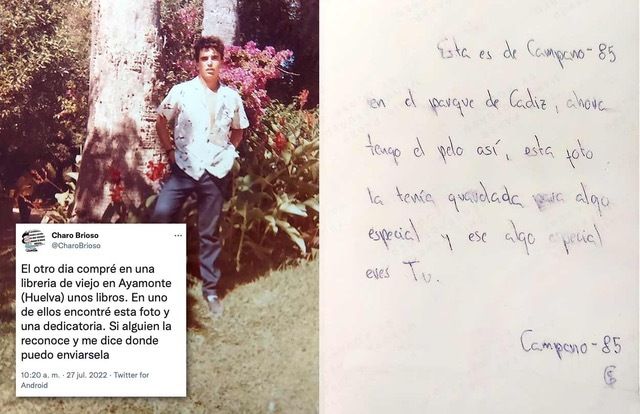 Charo Brioso
@CharoBrioso
El otro dia compré en una
libreria de viejo en Ayamonte
(Huelva) unos libros. En uno
de ellos encontré esta foto y
una dedicatoria. Si alguien la
reconoce y me dice donde
puedo enviarsela
10:20 a. m. · 27 jul. 2022 · Twitter for
Android
Esta es de Campano-85
en el parque de Cádiz, ahora
tengo el pelo así, esta foto
la tenía guardada para algo
especial y ese algo especial
eres Tu.
Campano-85